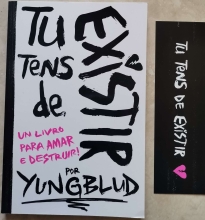 TU
TENS
de
EXÍSTIR
UM LIVRO
PARA AMAR
E DESTRUIR!
POR
YUNGBLUD
TU TENS DE EXÍSTIR